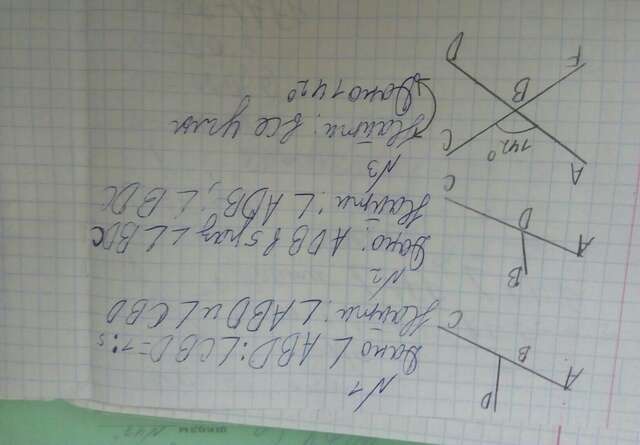 N1
Дано ∠ABD:∠CBD=7:5
Найти: ∠ABD и ∠CBD
D
A B C
N2
Дано: ADB в 5 раз < ∠BDC
Найти: ∠ADB; ∠BDC
B
A D C
N3
Найти: все углы
Дано 142°
A C
142°
B
F D